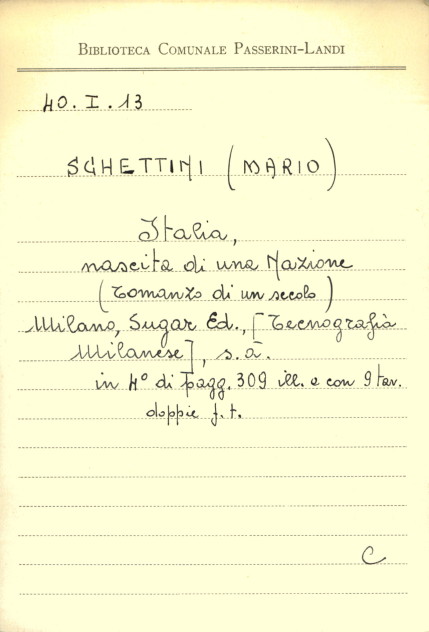 BIBLIOTECA COMUNALE PASSERINI-LANDI
40. I. 13
SCHETTINI (MARIO)
Italia,
nascita di una Nazione
(romanzo di un secolo)
Milano, Sugar Ed., [Tecnografia
Milanese], s.a.
in 4° di pagg. 309 ill. e con 9 tav.
doppie f.t.
C